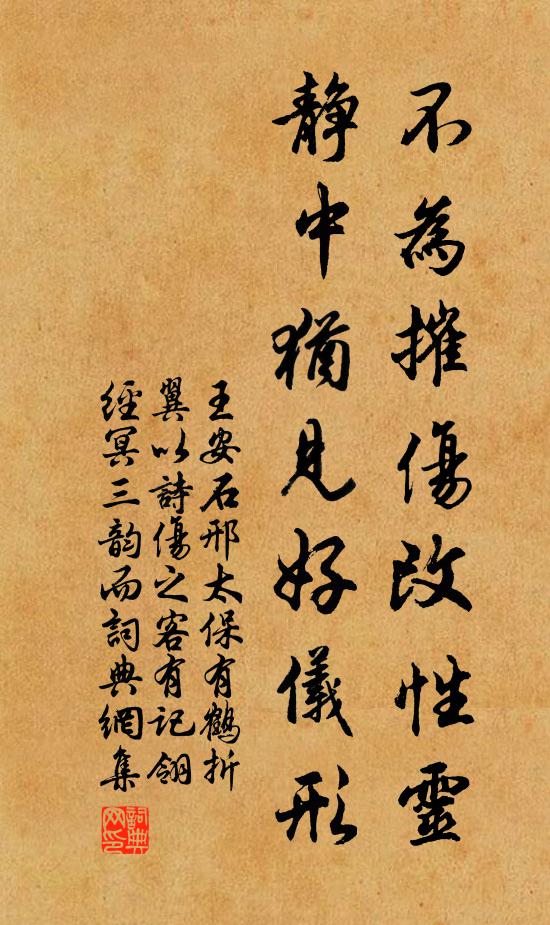 不為摧傷改性靈
靜中猶見好儀形
王安石邢太保有鶴折
翼以詩傷之客有記翎
經冥三韵而詞典網集
詞典
网印